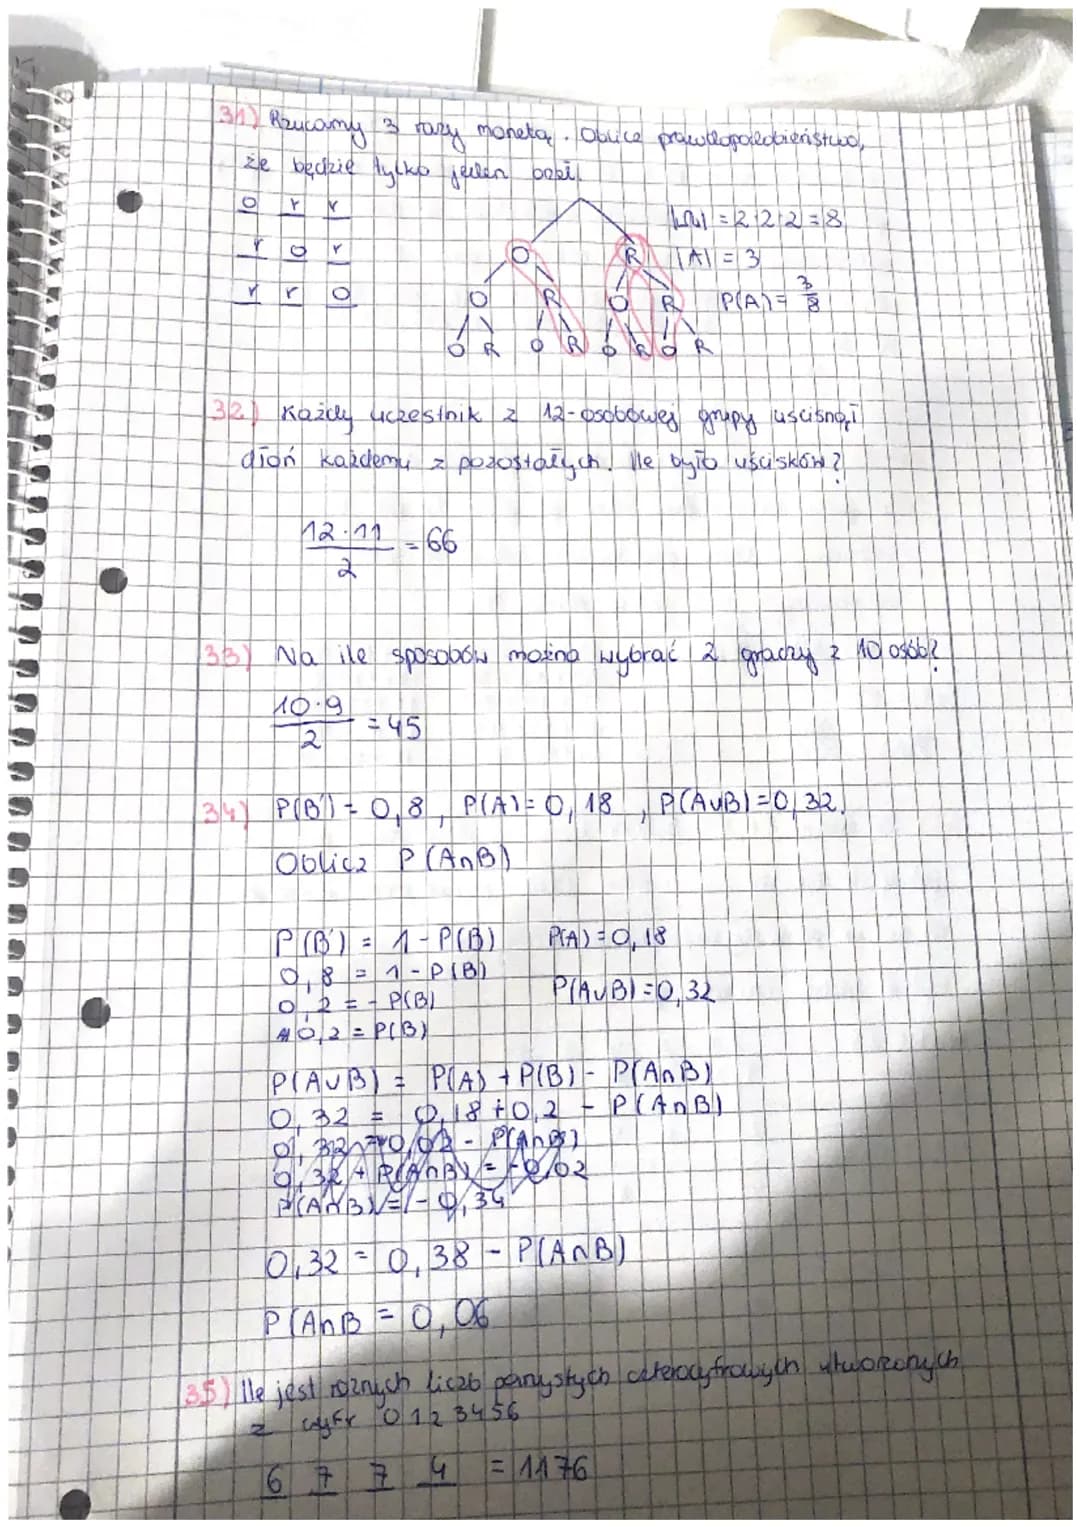 31) Rzucamy 3 razy monetą. Oblicz prawdopodobieństwo,
że będzie tylko jeden orzeł.
o r r
r o r
r r o
|Ω| = 2·2·2 = 8
|A| = 3
P(A) = 3/8
O R
O R O R
O R O R O R O R
32) Każdy uczestnik z 12-osobowej grupy uścisnął
dłoń każdemu z pozostałych. Ile było uścisków?
12·11/2 = 66
33) Na ile sposobów można wybrać 2 graczy z 10 osób?
10·9/2 = 45
34) P(B') = 0,8, P(A) = 0,18, P(A∪B) = 0,32.
Oblicz P(A∩B)
P(B') = 1 - P(B) P(A) = 0,18
0,8 = 1 - P(B)
0,2 = - P(B) P(A∪B) = 0,32
0,2 = P(B)
P(A∪B) = P(A) + P(B) - P(A∩B)
0,32 = 0,18 + 0,2 - P(A∩B)
0,32 = 0,02 - P(A∩B)
0,32 + P(A∩B) = -0,02
P(A∩B) = -0,34
0,32 = 0,38 - P(A∩B)
P(A∩B = 0,06
35) Ile jest różnych liczb parzystych czterocyfrowych utworzonych
z cyfr 0123456
6 7 7 4 = 1176